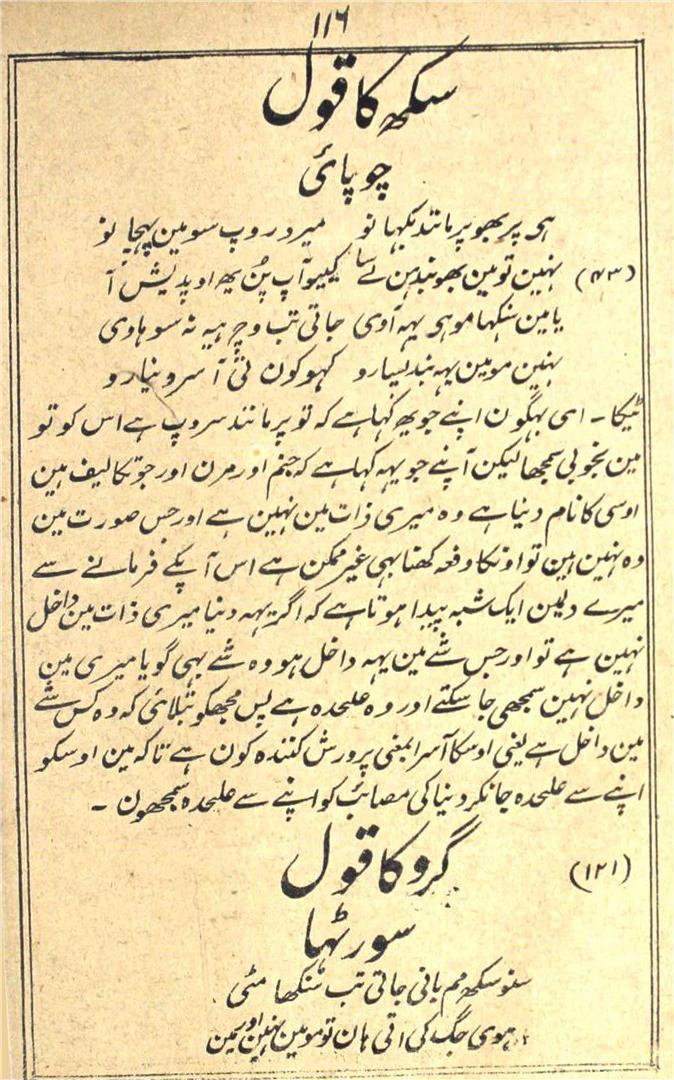 ۱۱۶
سکھ کا قول
چوپائی
ہی پربھو پرمانند بکہانو میرد روپ سو مین پہچانو
(۴۳) نہین تو مین بھو بندہن لے سا کیبو آپ پُن یھ اوپدیش آ
یا مین سنکہا موہی یہہ آوی جاتی تب وچ ہیہ نہ سوہاوی
نہین مو مین یہہ بند پسارو کہو کون تی آسرو نیارو
ٹیکا ۔ اے بہگون اپنے جو یھ کہا ہے کہ تو پرمانند سروپ ہے اس کو تو
مین بخوبی سمجھا لیکن آپنے جو یہہ کہا ہے کہ جنم اور مرن اور جو تکالیف ہین
اوسی کا نام دنیا ہے وہ میری ذات مین نہین ہے اور جس صورت مین
وہ نہین ہین تو اونکا وفعہ کہنا بہی غیر ممکن ہے اس آپکے فرمانے سے
میرے دلمین ایک شبہ پیدا ہوتا ہے کہ اگر یہہ دنیا میری ذات مین داخل
نہین ہے تو اور جس شے مین یہہ داخل ہو وہ شے بہی گویا میری مین
داخل نہین سمجھی جا سکتے اور وہ علحدہ ہے پس مجھکو بتلائی کہ وہ کس شے
مین داخل ہے یعنی اوسکا آسرا بمعنی پرورش کنندہ کون ہے تاکہ مین اوسکو
اپنے سے علحدہ جانکر دنیا کی مصائب کو اپنے سے علحدہ سمجھون ۔
گرو کا قول
(۱۲۱)
سورٹہا
سنو سکھ مم بانی جاتی تب سنکھا مٹی
ہوی جگ کی اتی ہان تو مو مین نہین اور مین